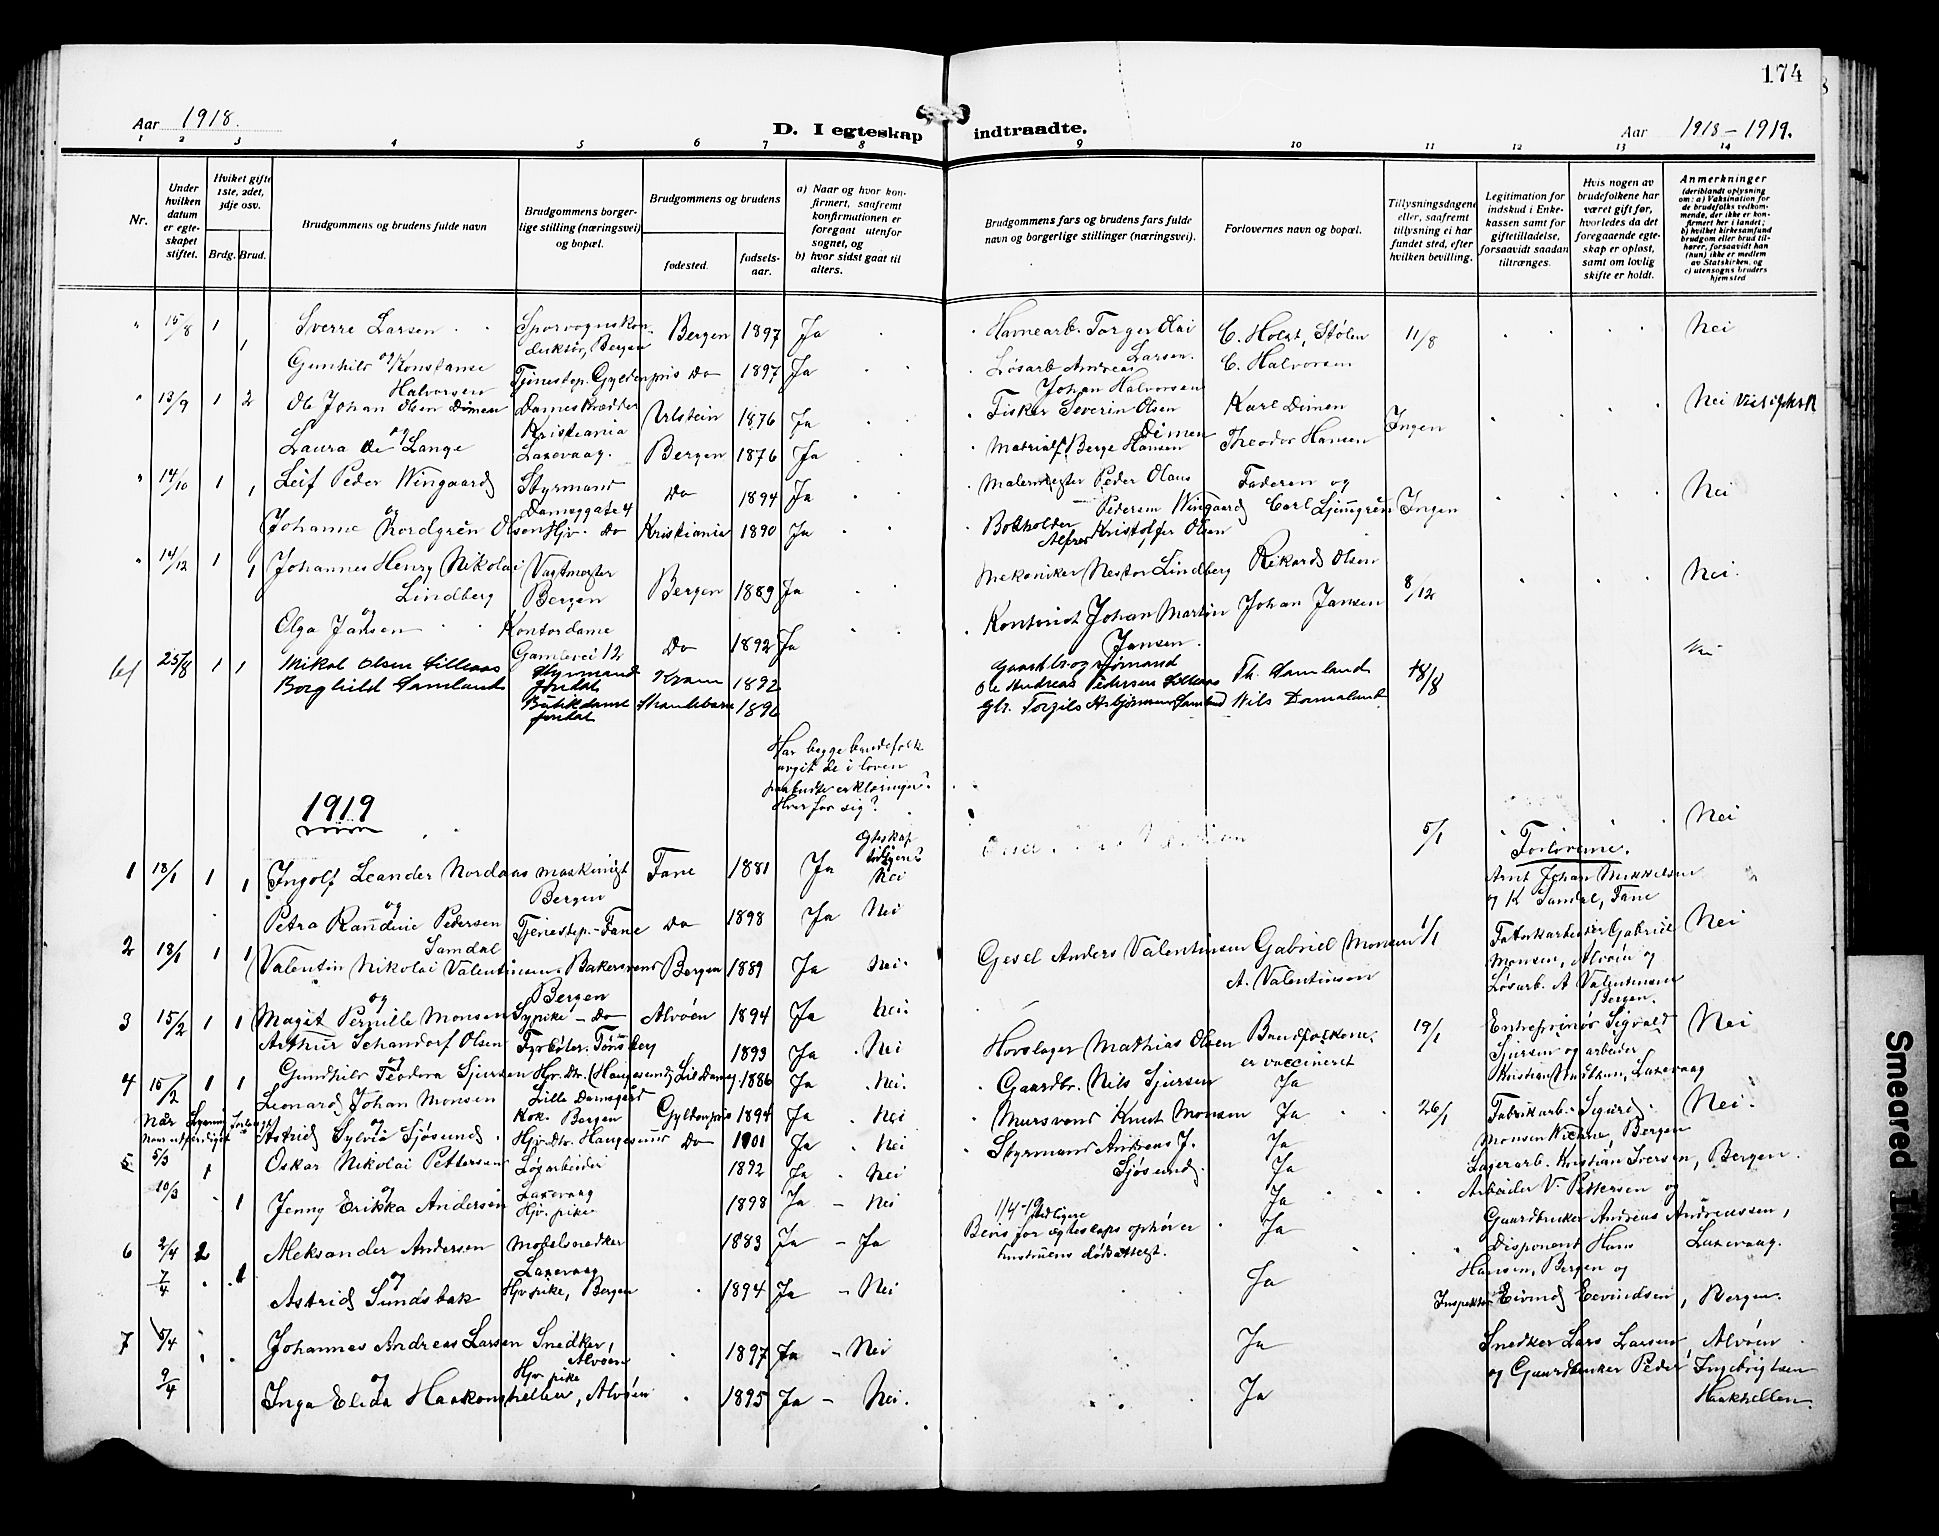 174
Aar 1918.
D. I egteskap indtraadte.
Aar 1918-1919.
1 2 3 4 5 6 7 8 9 10 11 12 13 14
Nr.
Under hvilken datum er egteskapet stiftet.
Hviket gifte 1ste, 2det, 3dje osv.
Brdg. Brud.
Brudgommens og brudens fulde navn
Brudgommens borgerlige stilling (næringsvei) og bopæl.
Brudgommens og brudens
fødested.
fødselsaar.
a) Naar og hvor konfirmert, saafremt konfirmationen er foregaat utenfor sognet, og
b) hvor sidst gaat til alters.
Brudgommens fars og brudens fars fulde navn og borgerlige stillinger (næringsvei).
Forlovernes navn og bopæl.
Tillysningsdagene eller, saafremt tillysning ei har fundet sted, efter hvilken bevilling.
Legitimation for indskud i Enkekassen samt for giftetilladelse, forsaavidt saadan tiltrænges.
Hvis nogen av brudefolkene har været gift før, hvorledes da det foregaaende egteskap er opløst, samt om lovlig skifte er holdt.
Anmerkninger (deriblandt oplysning om: a) Vaksination for de brudefolks vedkommende, der ikke er konfirmert her i landet; b) hvilket kirkesamfund brudgom eller brud tilhører, forsaavidt han (hun) ikke er medlem av Statskirken, og c) utensogns bruders hjemsted
" 15/8 1 Sverre Larsen Sporvognskonduktør, Bergen Bergen 1897 Ja Torger Olai Larsen. C. Holst, Stølen 11/8 Nei
1 og Gunhild Konstanse Halvorsen Tjenestep. Gyldenpris Do 1897 Ja Løsarb. Andreas Johan Halvorsen C. Halvorsen
" 13/9 1 2 Ole Johan Olsen Dimen Kristiania 1876 Ja Fisker Severin Olsen Dimen Karl Dimen Ingen Nei
og Laura de Lange Laxevaag. Bergen 1876 Ja Berge Hansen Theodor Hansen
" 14/10 1 1 Leif Peder Wingaard Styrmand Damsggate 4 Do 1894 Ja Malermester Peder Olaus Pedersen Wingaard Faderen og Carl Ljunngrén Ingen Nei
og Johanne Nordgrén Olson Hjv. Do Kristiania 1890 Ja Alfred Kristoffer Olsen
" 14/12 1 1 Johannes Henry Nikolai Lindberg Vagtmester Bergen Bergen 1889 Ja Mekaniker Nestor Lindberg Rikard Olsen 8/12 Nei.
og Olga Jansen Kontordame Gamlevei 12 Do 1892 Ja Kontorist Johan Martin Jansen. Johan Jansen
25/8 1 1 Mikal Olsen Lilleaas Styrmand Jordal 1892 Ole Andreas Pedersen Lilleaas Th. Samland 18/8
Borghild Samland Butikdame Jordal Strandebarm 1896 Gbr. Torgils Asbjørnsen Samland
Har begge brudefolk avgit de i loven paabudte erklæringer? Hver for sig?
1919
Egteskap tidligere?
Forloverne.
1 18/1 1 1 Ingolf Leander Nordaas Maskinist Bergen Fane 1881 Ja Nei 5/1 Arnt Johan Mikkelsen og K Samdal, Fane Nei
og Petra Randine Pedersen Samdal Tjenestep. - Fane Do 1898 Ja Nei
2 18/1 1 1 Valentin Nikolai Valentinsen Bakersvend Bergen Bergen 1889 Ja Nei. Gesel Anders Valentinsen Gabriel Monsen 1/1 Fabrikarbeider Gabriel Monsen, Alvøen og Nei
og Magit Pernille Monsen Sypike - Do Alvøen 1894 Ja Nei. A. Valentinsen Løsarb. A Valentinsen Bergen.
3 15/2 1 1 Arthur Schandorf Olsen Fyrbøter. Tønsberg 1893 Ja Nei Hovslager Mathias Olsen Brudfolkene er vaccineret 19/1 Entreprenør Sigvald Sjursen og arbeider Nei
og Gundhild Teodora Sjursen Hjv. Dtr. (Haugesund) Lille Damsgård 1886 Ja Nei. Gaardbr. Nils Sjursen Ja Laxevaag
4 15/2 1 1 Leonard Johan Monsen Kok. Bergen Gyldenpris 1894 Ja Nei Mursvend Knut Monsen Ja 26/1 Fabrikarb. Sigurd Monsen, Bergen Nei.
og Astrid Sylvia Sjøsund Hjv. Dtr. Haugesund Do 1901 Ja Nei Styrmand Andreas J. Sjøsund. Ja Lagerarb. Kristian Iversen, Bergen.
5 5/3 1 Oskar Nikolai Pettersen Løsarbeider Laxevaag 1892 Ja Nei Ja Arbeider V. Pettersen og
10/3 1 og Jenny Erikka Andersen Hjv. pike 1898 Ja - Nei Ja Gaardbruker Andreas Andreassen, Laxevaag.
6 2/4 2 Aleksander Andersen Modelsnedker Laxevaag 1883 Ja - Ja 1/4-19 Bevis for tidligere egteskaps ophør er hustruens dødsattest. Ja Disponent Hans Hansen, Bergen og
7/4 1 og Astrid Sundsbak Hjv pike, Bergen 1894 Ja - Nei Ja Inspektør Eivind Eevindsen, Bergen.
7 5/4 Johannes Andreas Larsen Snedker, Alvøen 1897 Ja - Nei Ja Snedker Lars Larsen, Alvøen
9/4 og Inga Elida Haakonshellen Hjv pike, Alvøen 1895 Ja - Nei. Ja og Gaardbruker Peder Ingebrigtsen Haakhellen.
Smeared